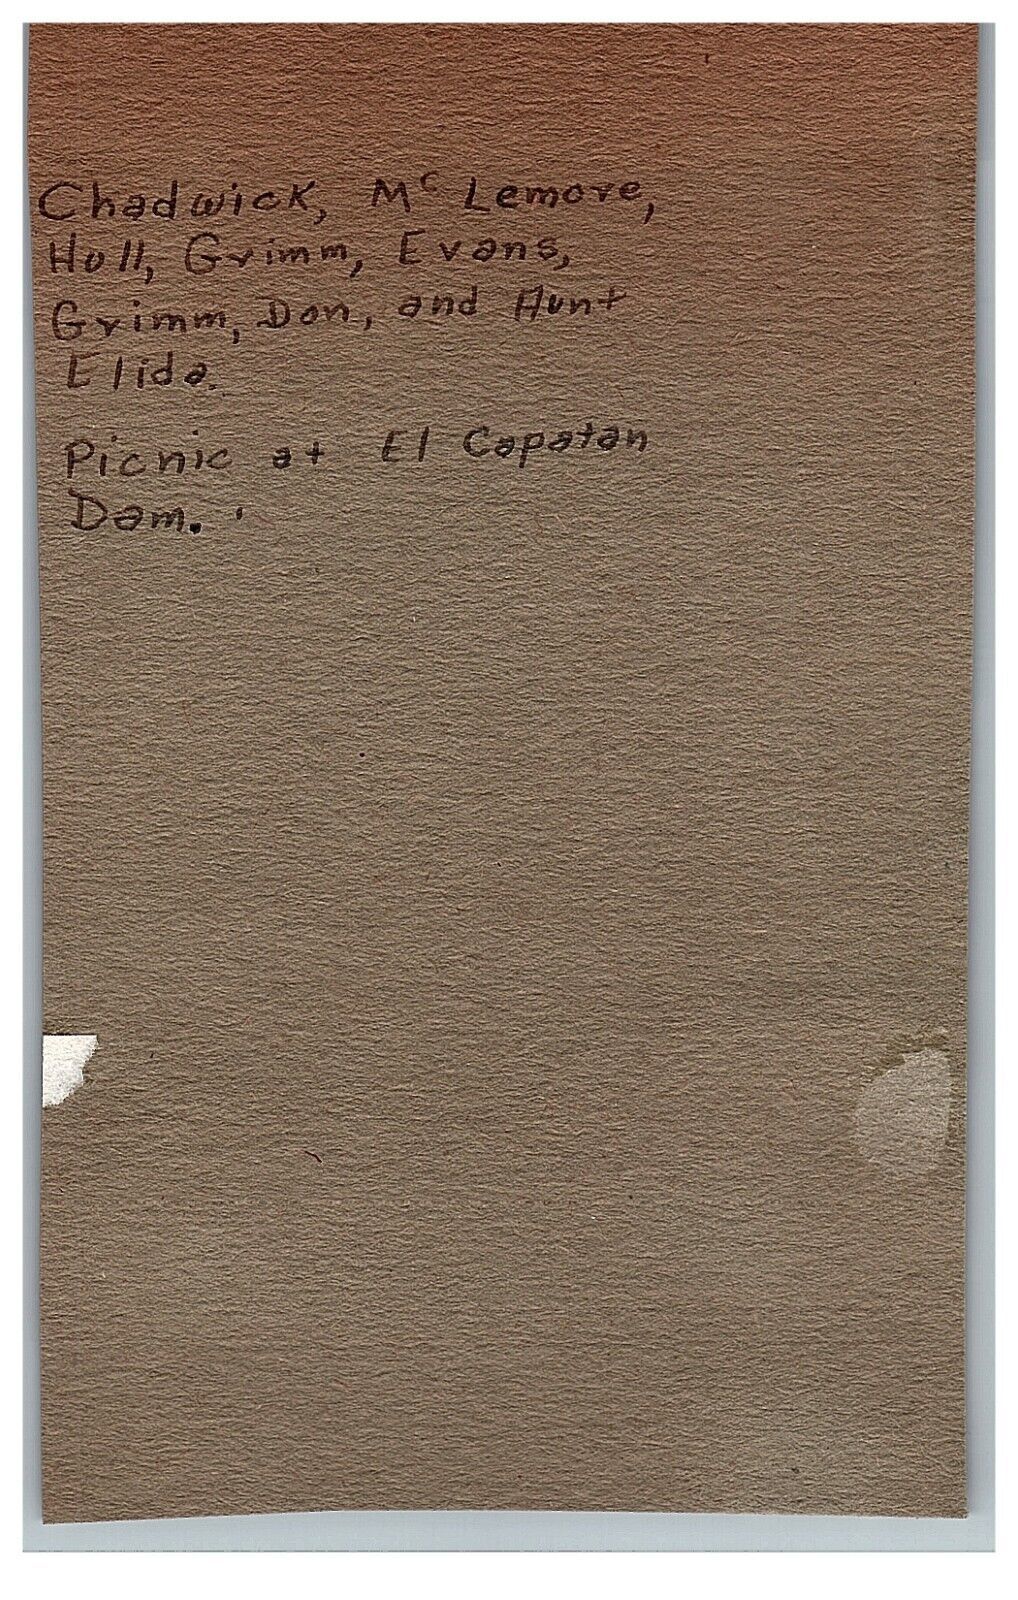 Chadwick, Mc Lemore,
Hull, Grimm, Evans,
Grimm, Don, and Aunt
Elida.
Picnic at El Capatan
Dam.